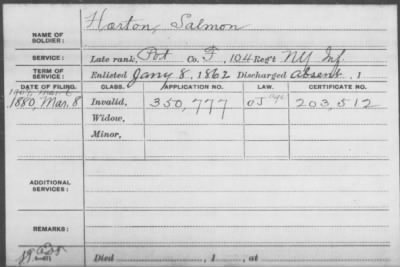 NAME OF SOLDIER: Harton, Salmon
SERVICE: Late rank, Pvt Co. F, 104 Reg't NY Inf.
TERM OF SERVICE: Enlisted Jany 8, 1862 Discharged absent, 1
DATE OF FILING. CLASS. APPLICATION NO. LAW. CERTIFICATE NO.
1880, Mar. 8 Invalid, 350,777 203,512
Widow,
Minor,
ADDITIONAL SERVICES:
REMARKS:
Died , 1 , at